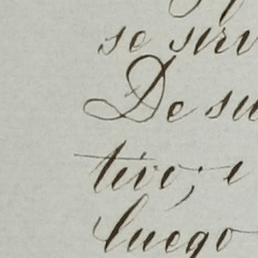 se serv
De su
tivo; e
luego